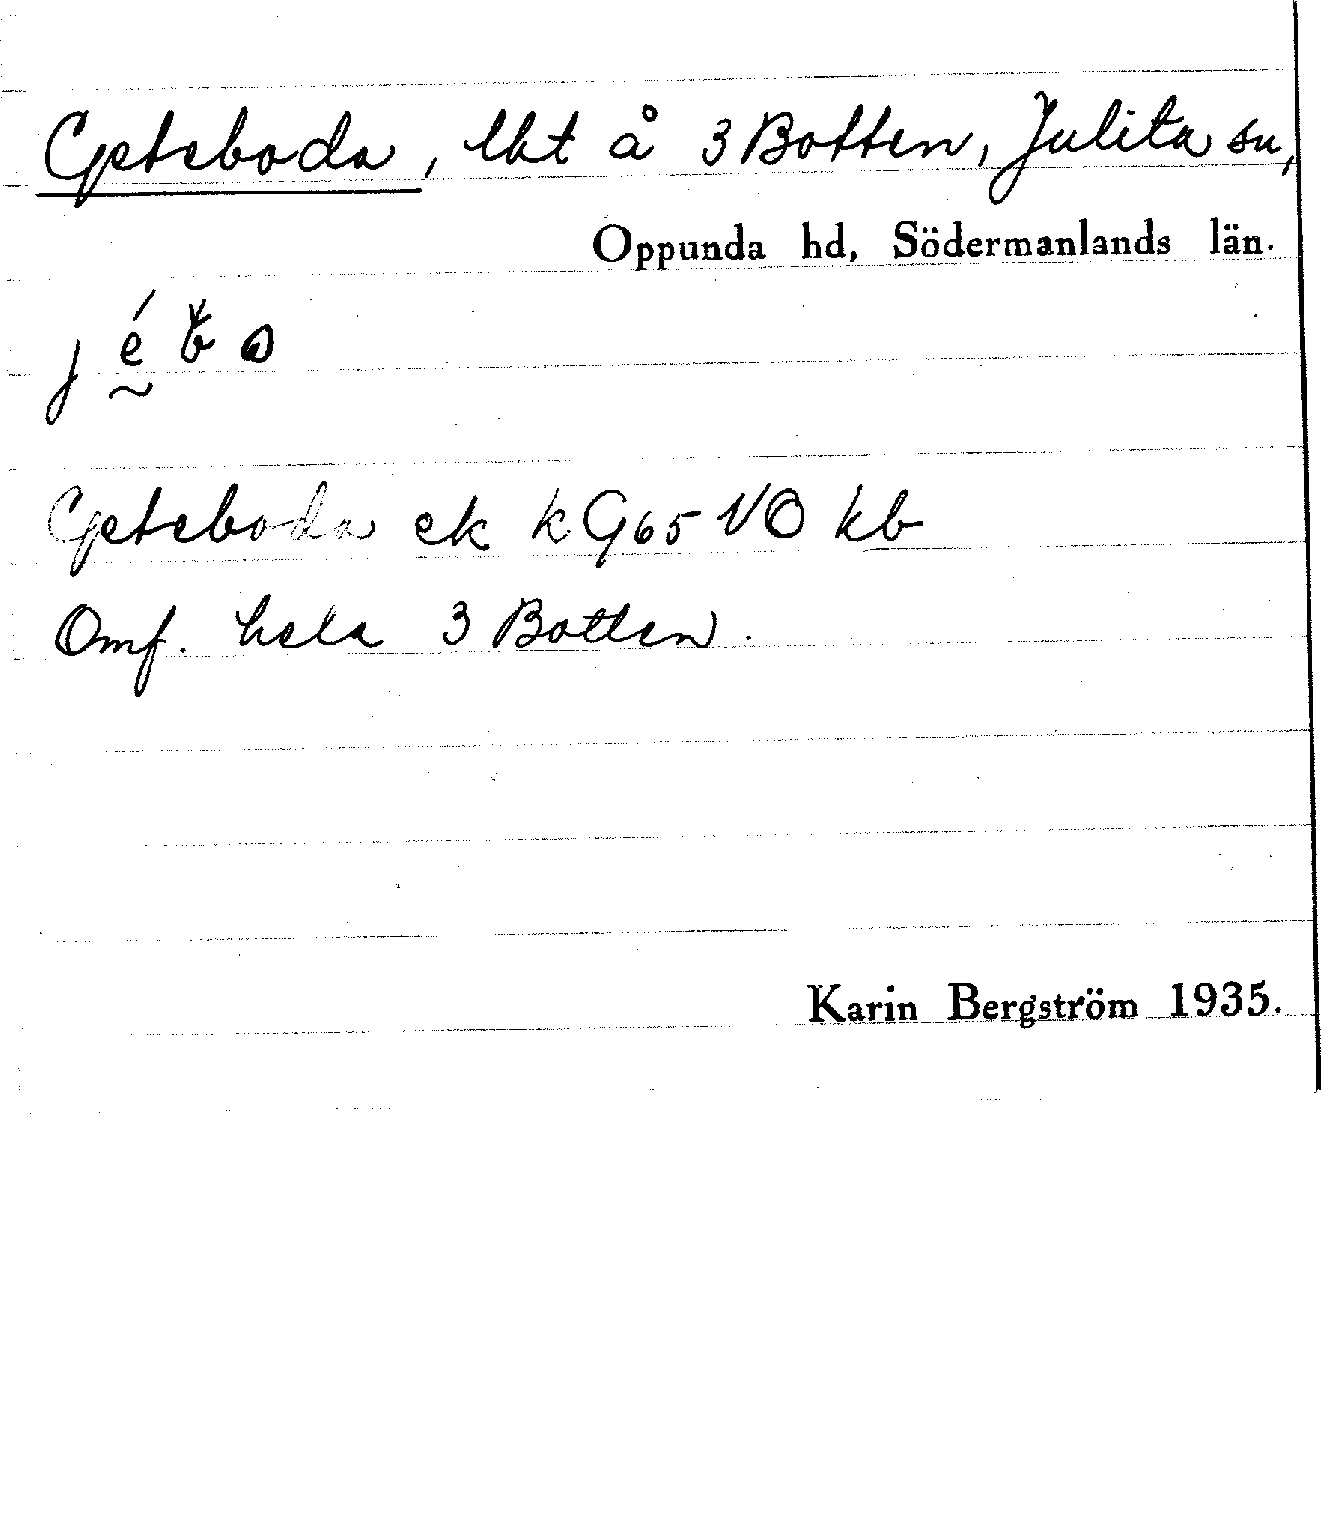 Geteboda, lht å 3 Botten, Julita sn,
Oppunda hd, Södermanlands län.
Geteboda ek k G65 VO kb
Omf. hela 3 Botten.
Karin Bergström 1935.